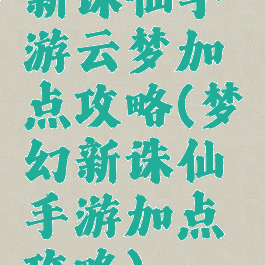 新诛仙手
游云梦加
点攻略(梦
幻新诛仙
手游加点
攻略)